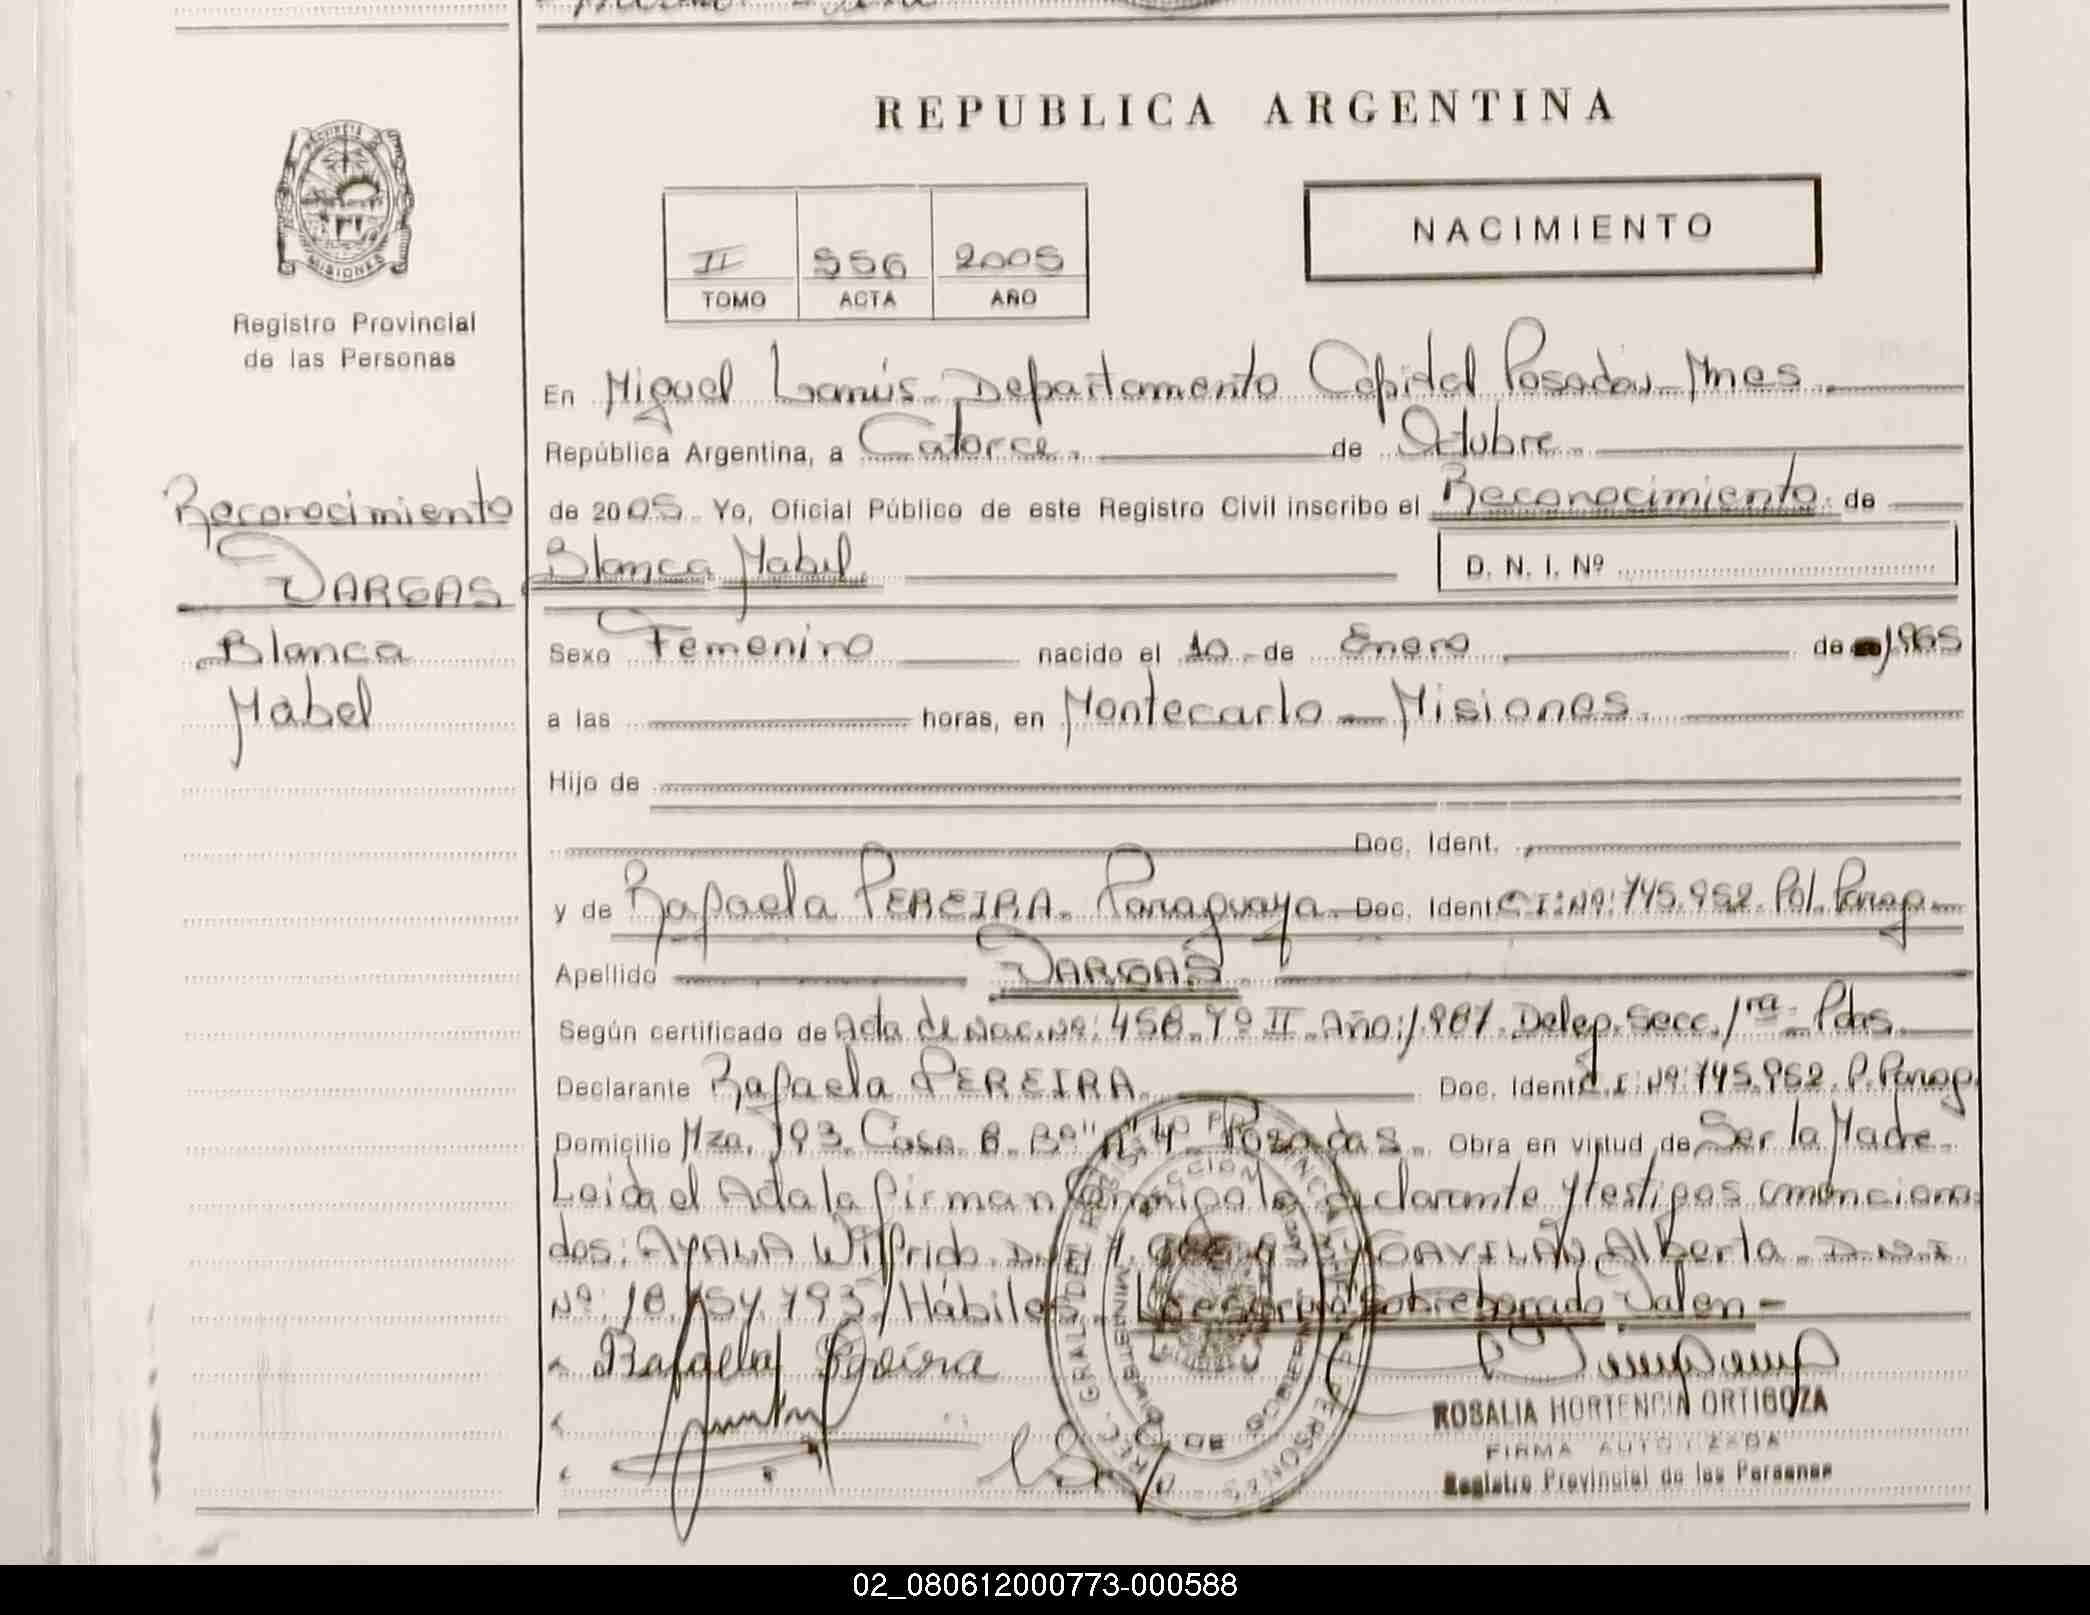 REPUBLICA ARGENTINA
MISIONES
Registro Provincial
de las Personas
II 556 2005
TOMO ACTA AÑO
NACIMIENTO
En Miguel Lanús Departamento Capital Posadas Mnes
República Argentina, a Catorce. de Octubre
de 2005. Yo, Oficial Público de este Registro Civil inscribo el Reconocimiento de
Blanca Mabel
D. N. I. Nº
Reconocimiento
VARGAS
Blanca
Mabel
Sexo Femenino nacido el 10 de Enero de 1965
a las horas, en Montecarlo - Misiones.
Hijo de
Doc. Ident.
y de Rafaela PEREIRA. Paraguaya Doc. Ident C.I: Nº: 745.952. Pol. Parag.
Apellido VARGAS
Según certificado de Acta de Nac. Nº: 458. Tº II. Año: 1.987. Deleg. Secc. 1ra. Pdas.
Declarante Rafaela PEREIRA. Doc. Ident C.I: Nº: 745.952. P. Parag.
Domicilio Mza. 193. Casa. 8. Bº "A" 4. Posadas. Obra en virtud de Ser la Madre.
Leida el Acta la firman conmigo la declarante y testigos
dos: AYALA Wilfrido. D.N.I Y GAVILÁN Alberta. D.N.I
Nº: 18. 793/ Hábiles. Lo escrito sobreborrado Valen -
Rafaela Pereira
ROSALIA HORTENCIA ORTIGOZA
FIRMA AUTORIZADA
Registro Provincial de las Personas
02_080612000773-000588